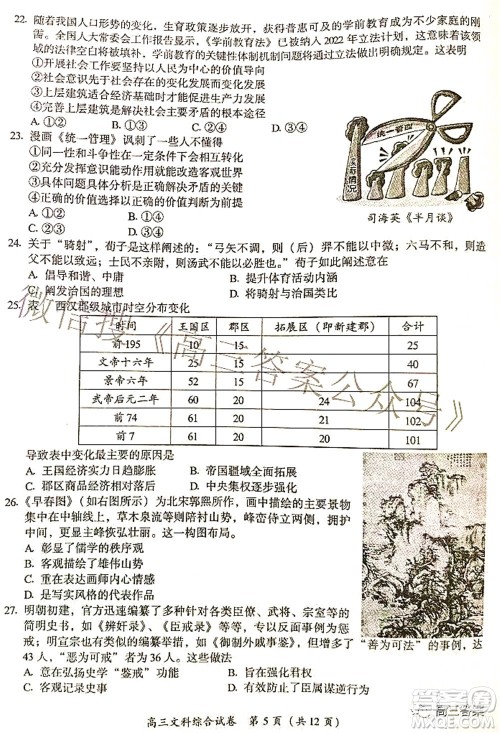 22. 随着我国人口形势的变化，生育政策逐步放开，获得普惠可及的学前教育成为不少家庭的刚
需。全国人大常委会工作报告显示，《学前教育法》已被纳入 2022 年立法计划，这意味着该领
域的法律空白将被填补，学前教育的关键性体制机制问题将通过立法做出明确规定。这表明
①社会工作要坚持以人民为中心的价值导向
②社会存在的变化发展决定社会意识的变化发展
③上层建筑适合经济基础时才能推动生产力发展
④完善上层建筑是解决社会主义矛盾的根本途径
A. ①② B. ①③ C. ②④ D. ③④
23. 漫画《统一管理》讽刺了一些人不懂得
①同一性和斗争性在一定条件下相互转化
②充分发挥意识能动作用才能正确认识世界
③矛盾的特殊性原理是正确解决矛盾的关键
④正确的价值选择具有客观条件性
A. ①② B. ①③ C. ②④ D. ③④
统一管理
实际情况
司海英《半月谈》
24. 关于“骑射”，荀子是这样阐述的：“弓矢不调，则（后）羿不能以中微；六马不和，则造
父不能以致远；士民不亲附，则汤武不能以必胜也。”荀子如此阐述意在
A. 倡导和谐、中庸 B. 提升体育活动内涵
C. 阐发治国的理想 D. 将骑射与治国类比
25. 表 西汉郡级城市时空分布变化
时间 王国区 郡区 拓展区（即新建郡） 合计
前 195 10 15 25
文帝十六年 25 15 40
景帝六年 52 15 67
武帝后元二年 60 20 24 104
前 74 61 20 21 102
前 7 61 20 20 101
导致表中变化最主要的原因是
A. 王国经济实力日趋膨胀 B. 帝国疆域全面开拓
C. 郡区商品经济发展 D. 中央集权逐步强化
26. 《早春图》（如右图所示）为北宋郭熙所作，画中描绘的主要景物
集中在中轴线上，草木泉流等则排列衬托，山势蜿蜒、左右两立，拥护
中主峰恢弘壮丽。这一构图布局
A. 彰显了儒学的审美
B. 客观描绘了雄伟山势
C. 突出了文人画写意神韵
D. 是写实风格的代表作品
27. 明朝初建，官方迅速编纂了多种针对各类臣僚、武将、宗室等的
简明史书，如《辨奸录》、《臣戒录》等，专以反面事例为惩
戒。明宣宗也有类似的编纂举措，如《御制外戚事鉴》中增广了“善为可法”的事例，达
43 人，“恶为可戒”者为 36 人。这些做法
A. 意在弘扬史学“鉴戒”功能
C. 客观记录史事
高三文科综合试卷 第 5 页（共 12 页）
微信搜《高三答案公众号》
高三答案